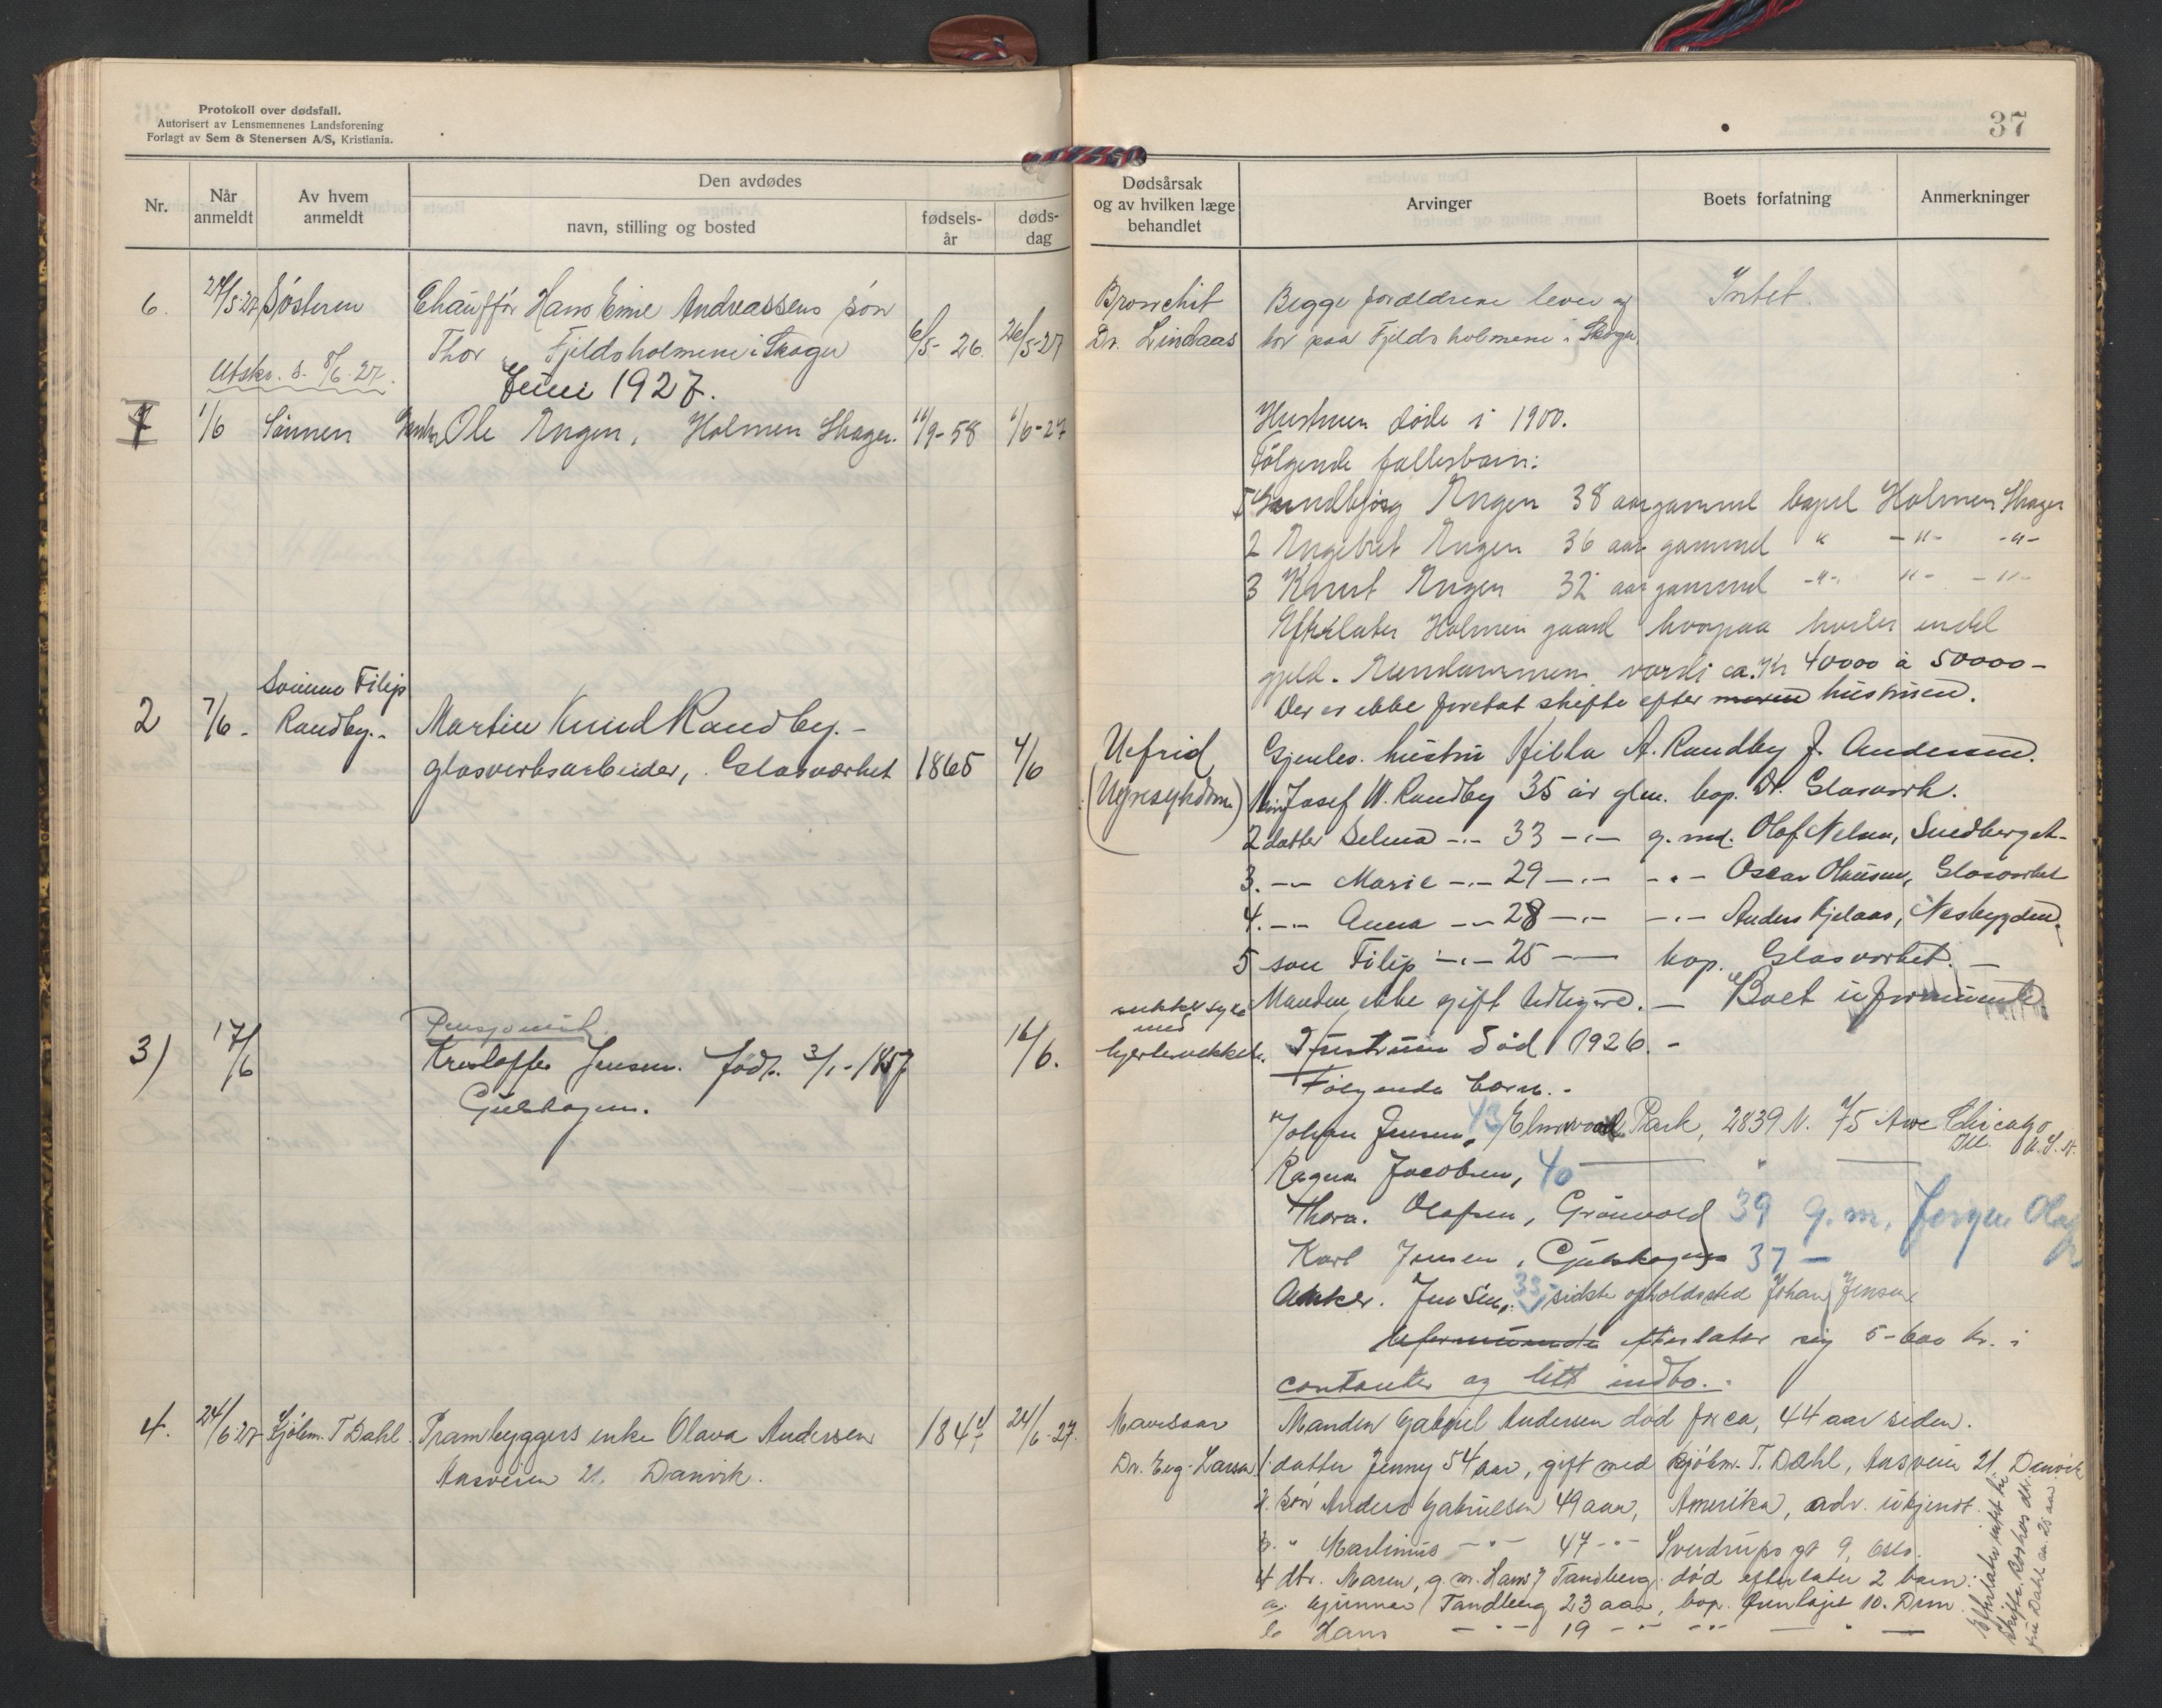 Protokoll over dødsfall.
Autorisert av Lensmennenes Landsforening
Forlagt av Sem & Stenersen A/S, Kristiania.
37
Nr.
Når anmeldt
Av hvem anmeldt
Den avdødes
navn, stilling og bosted
fødsels-år
døds-dag
Dødsårsak og av hvilken læge behandlet
Arvinger
Boets forfatning
Anmerkninger
6. 27/5-27 Søsteren Chauffør Hans Emil Andreassens søn 6/5-26. 26/5-27
Thor, Fjeldsholmene i Skoger
Utskr. s. 8/6-27.
Bronchit
Dr. Lindaas
Begge forældrene lever og
bor paa Fjeldsholmene i Skoger
Intet.
Juni 1927.
1 1/6 Sønnen Ole Engen, Holmen Skoger. 11/9-58 1/6-27
Hustruen døde i 1900.
Følgende fællesbarn:
1 Gundbjørg Engen 38 aar gammel bopel Holmen Skoger
2 Engebret Engen 36 aar gammel " -"- -"-
3 Knut Engen 32 aar gammel -"- "- -"-
Efterlater Holmen gaard hvorpaa hviler endel
gjeld. Eiendommens værdi ca. Kr 40000 à 50000-
Der er ikke foretat skifte efter hustruen.
2 7/6- Sønnen Filip Randby.-
Martin Knud Randby.-
glasverksarbeider, Glasværket 1865 4/6
Uefrid
(Nyresykdom)
Gjenlev. hustru Hilda A. Randby f. Andersen.
1 Josef W. Randby 35 år glm. bop. Dr. Glasverk.
2 datter Selma -"- 33 -"- g. med. Olaf Nelsen, Svedberget-
3. -"- Marie -"- 29 -"- -"- Oscar Olausen, Glasverket
4. -"- Anna -"- 28 -"- -"- Anders Kjelaas, Nesbygden.
5 søn Filip -"- 25 -"- bop. Glasværket.-
Manden ikke gift tidligere.- Boet uformuende.
3) 17/6
Pensjonist.
Kristoffer Jensen. født. 3/1-1857 16/6.
Gulskogen.
sukkersyke
med
Hustruen død 1926.-
Følgende barn.-
Johan Jensen, 43 Elmwood Park, 2839 N. 75 Awe Chicago
Ill. U.S.A.
Ragna Jacobsen, 40 — " —
Thora. Olafsen, Grønvold 39 g. m. Jørgen Olaf
Karl Jensen, Gulskogen 37 —
Anker. Jensen, 33 sidste opholdssted Johan Jensen
Uformuende efterlater sig 5-600 kr. i
contanter og litt indbo.-
4. 24/6-27 Kjøbm. T Dahl. Prambyggers enke Olava Andersen 1844 24/6-27.
Aasveien 21, Danvik.
Mavesaar
Dr. Eug. Larsen
Manden Gabriel Andersen død for ca, 44 aar siden.
1. datter Jenny 54 aar, gift med kjøbm. T. Dahl, Aasveien 21. Danvik
2. søn Anders Gabrielsen 49 aar, Amerika, adr. ukjendt.
3. " Martinius -"- 47 -"- Sverdrups gt 9, Oslo.
4 dtr. Maren, g. m. Hans J Tandberg, død efterlater 2 barn:
a. Gunnar Tandberg 23 aar, bop. Drm
b Hans -"- 19 -"- -"- — " —
Efterlater intet til
skifte. Bos hos dtr.
fru Dahl i 25 aar